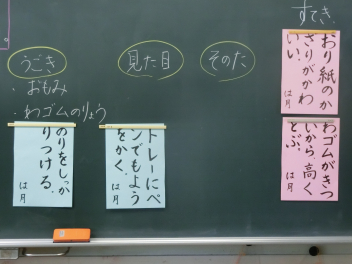 すてき
うごき
・おもみ
・わゴムのりょう
見た目
そのた
おり紙のか
ざりがかわ
いい。
は月
わゴムがきつ
いから、高く
とぶ。
は月
トレーにペ
ンでもよう
をかく。
は月
のりをしっか
りつける。
は月